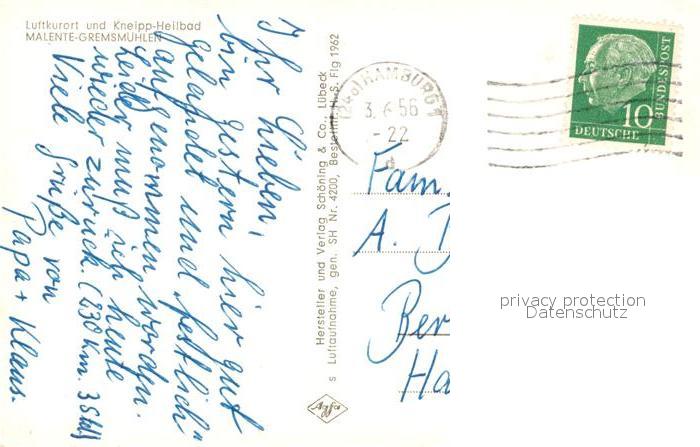 Luftkurort und Kneipp-Heilbad
MALENTE-GREMSMÜHLEN
Ihr Lieben,
bin gestern hier gut
gelandet und „festlich"
aufgenommen worden.
Leider muß ich heute
wieder zurück. (230 km. 3 Std)
Viele Grüße von
Papa + Klaus.
Hersteller und Verlag Schöning & Co., Lübeck
s Luftaufnahme, gen. SH Nr. 4200, Bestellnr. H-S. Flg 1962
Agfa
HAMBURG 1
56
-22
10
DEUTSCHE
BUNDESPOST
Fam.
A.
Ber
Ha
privacy protection
Datenschutz